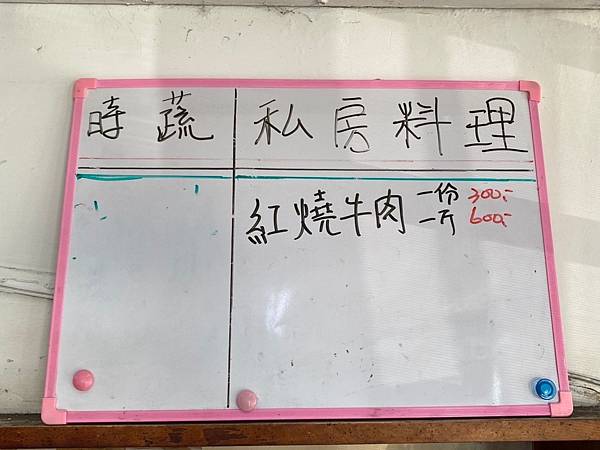 時蔬 私房料理
紅燒牛肉 一份 300.-
一斤 600.-